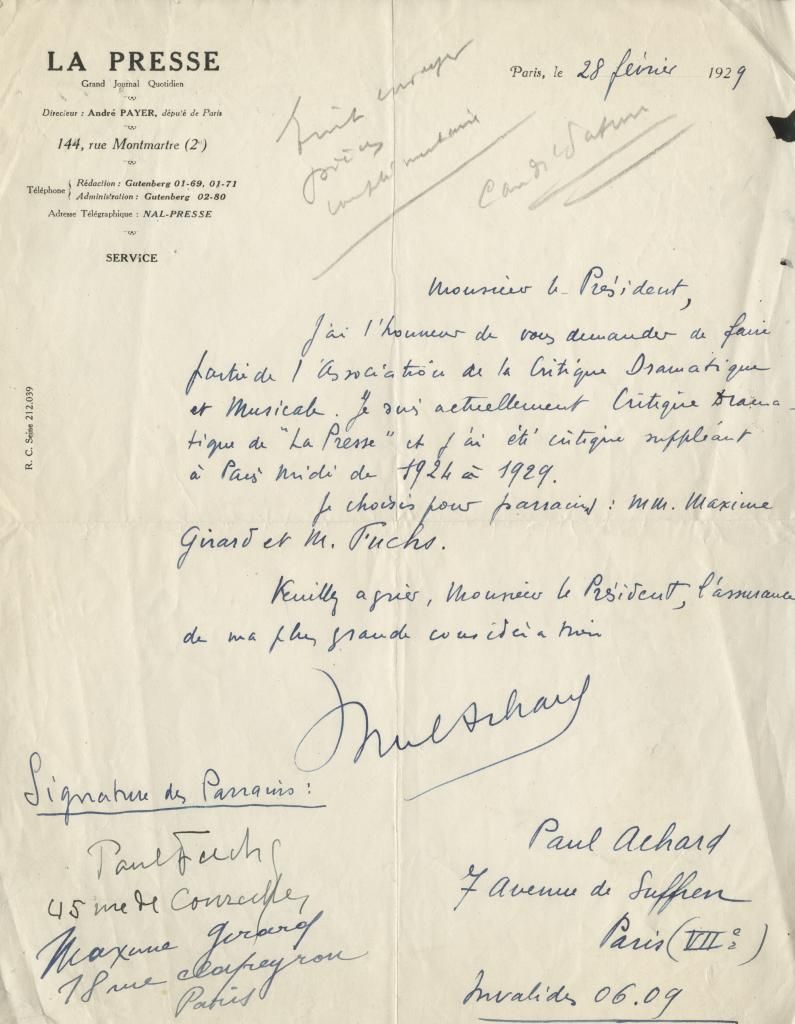 LA PRESSE
Grand Journal Quotidien
Directeur : André PAYER, député de Paris
144, rue Montmartre (2e)
Téléphone { Rédaction : Gutenberg 01-69, 01-71
Administration : Gutenberg 02-80
Adresse Télégraphique : NAL-PRESSE
SERVICE
R. C. Seine 212.039
Paris, le 28 février 1929
envoyer
complémentaire
Candidature
Monsieur le Président,
J'ai l'honneur de vous demander de faire
partie de l'Association de la Critique Dramatique
et Musicale. Je suis actuellement Critique Drama-
tique de "La Presse" et j'ai été critique suppléant
à Paris Midi de 1924 à 1929.
Je choisis pour parrains : MM. Maxime
Girard et M. Fuchs.
Veuillez agréer, Monsieur le Président, l'assurance
de ma plus grande considération
Paul Achard
Signature des Parrains :
Paul Fuchs
45 rue de Courcelles
Maxime Girard
18 rue Clapeyron
Paris
Paul Achard
7 Avenue de Suffren
Paris (VIIe)
Invalides 06.09